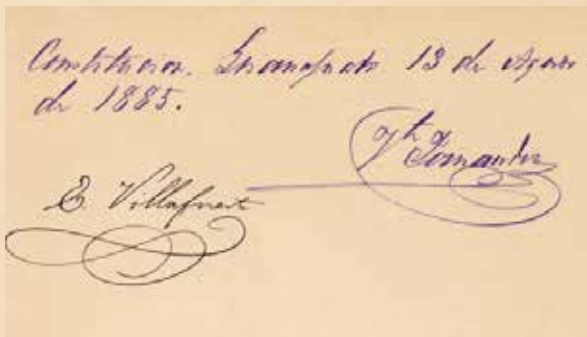 Constitucion. Guanajuato 13 de Agosto
de 1885.
E. Villafuert